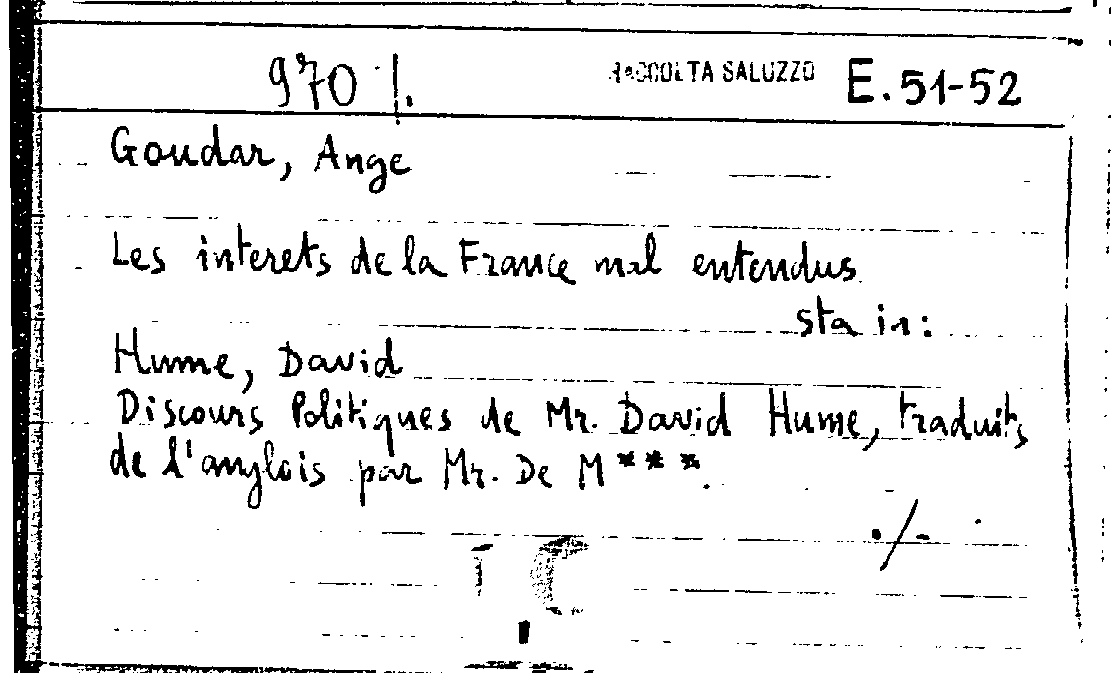 970 /. RACCOLTA SALUZZO E.51-52
Goudar, Ange
Les interets de la France mal entendus
sta in:
Hume, David
Discours Politiques de Mr. David Hume, traduits
de l'anglois par Mr. De M***.
./.